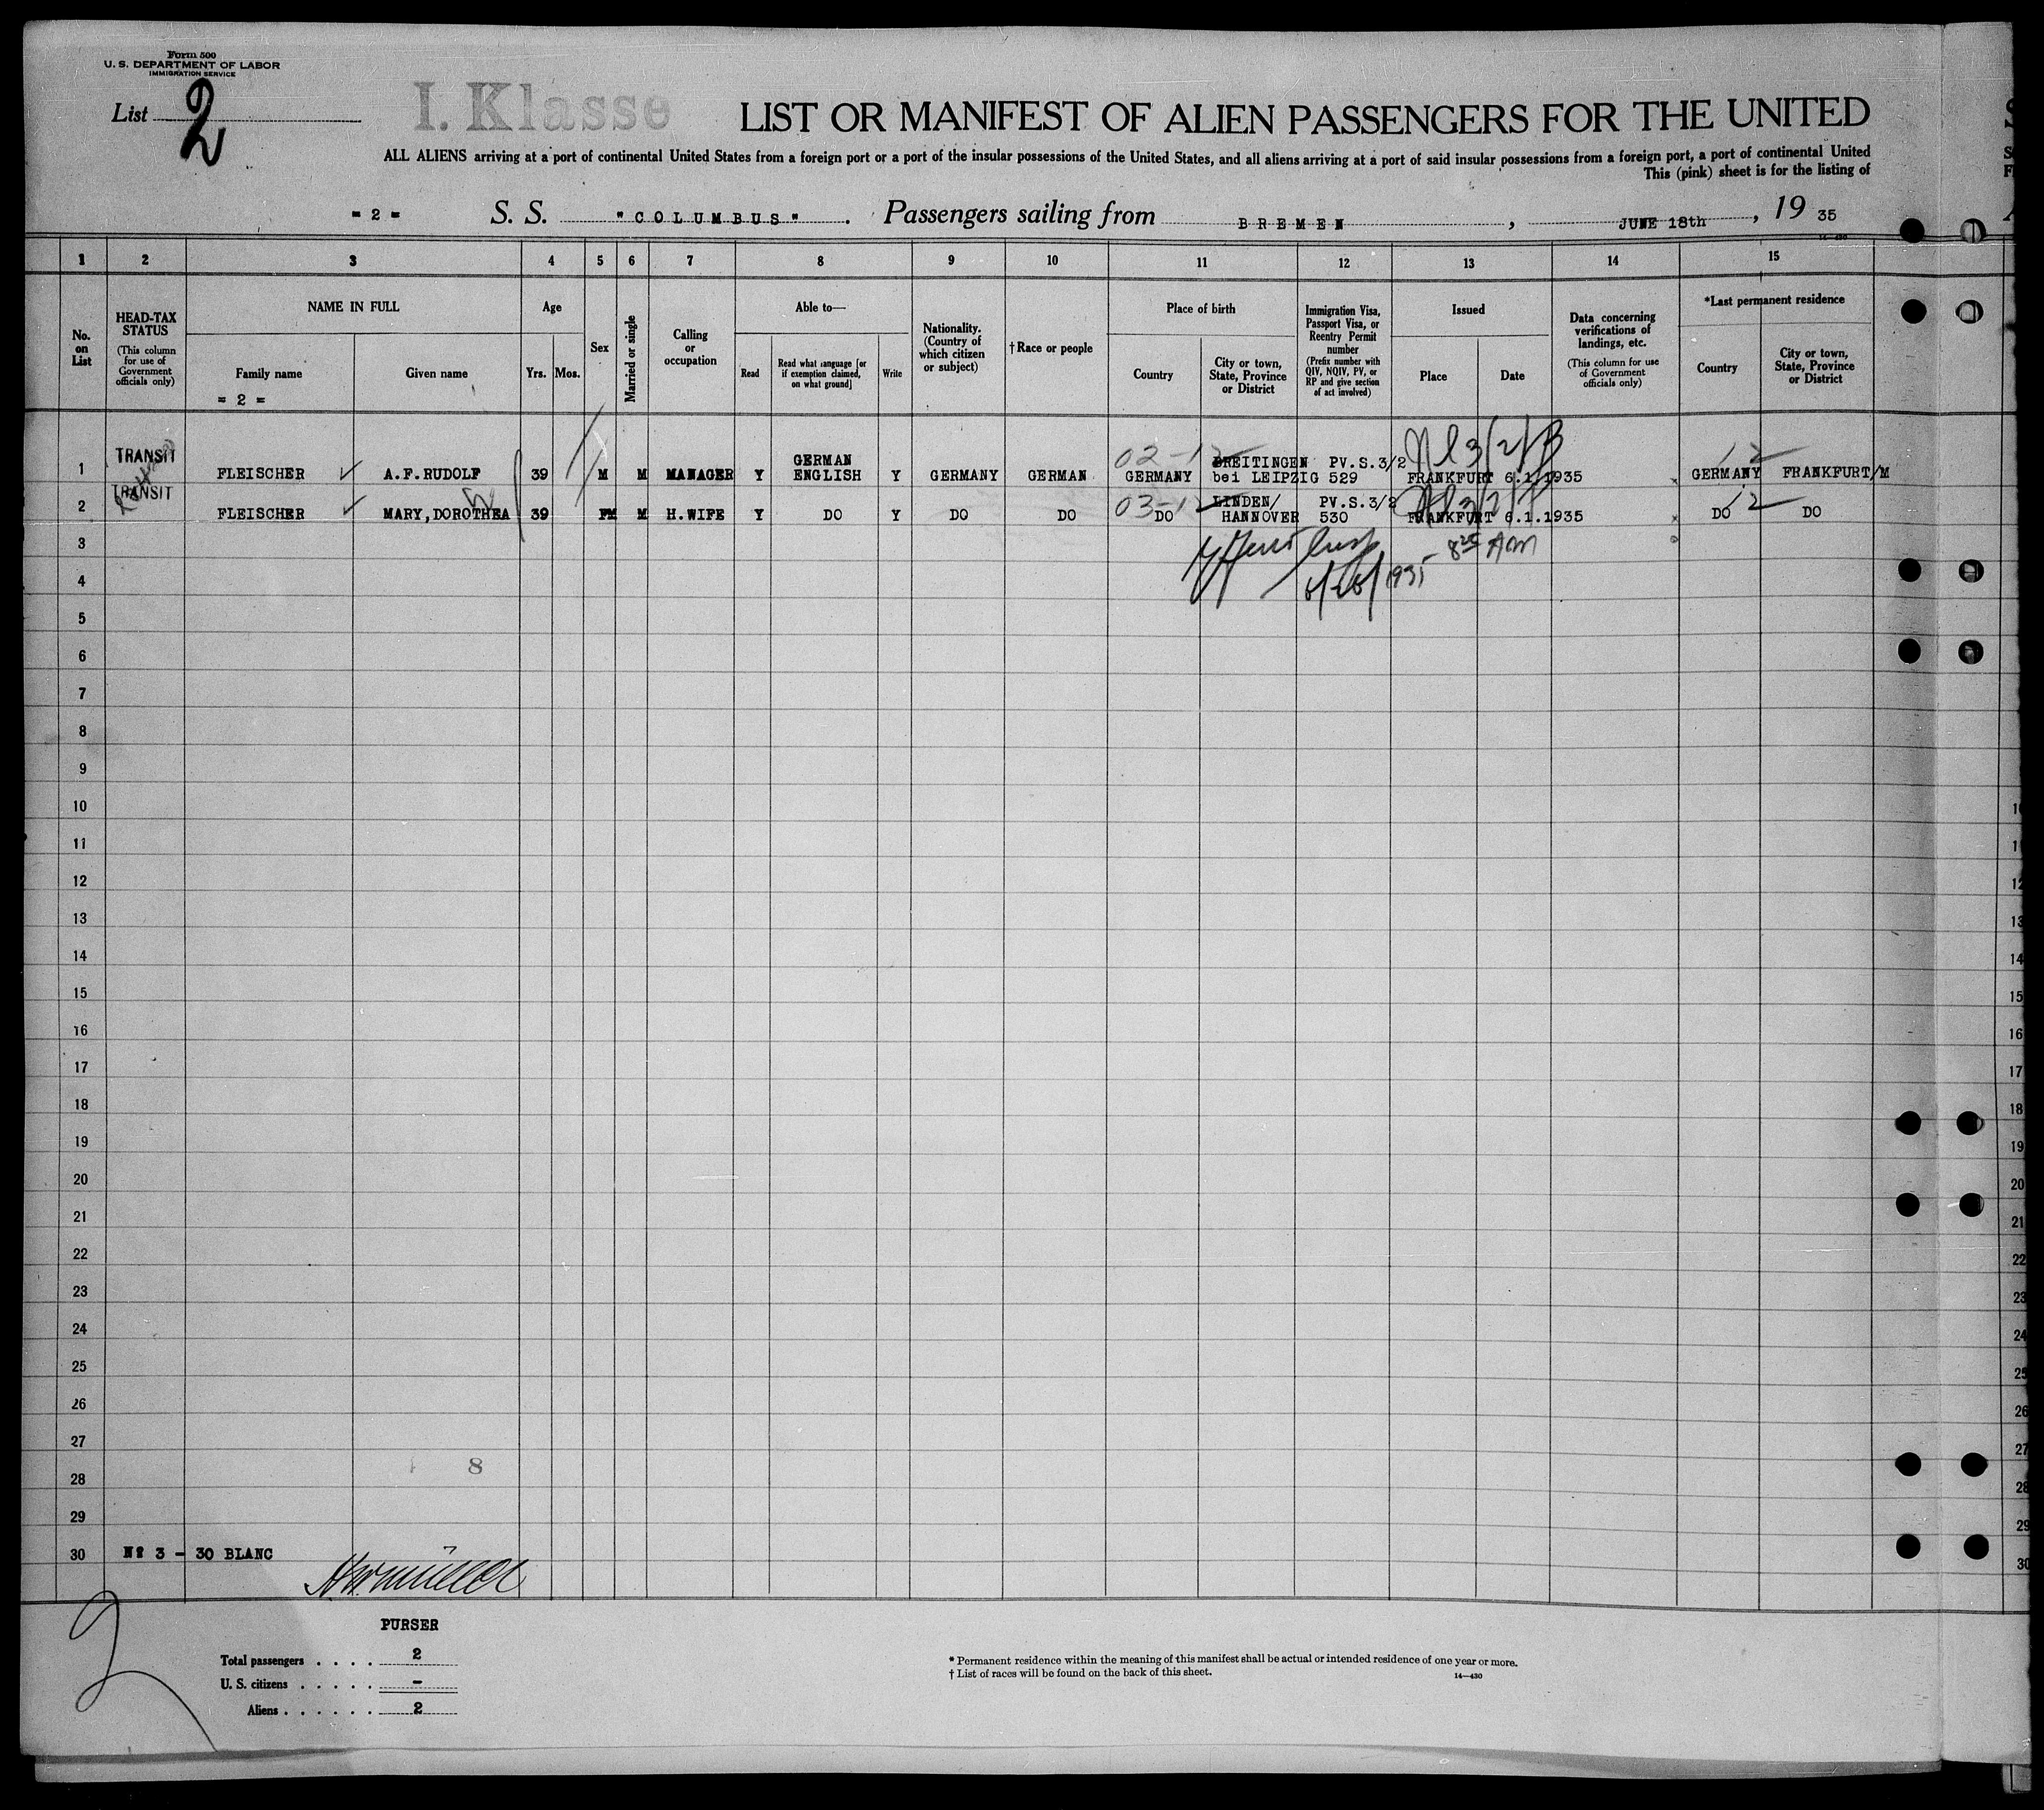 Form 500
U. S. DEPARTMENT OF LABOR
IMMIGRATION SERVICE
List 2
I. Klasse
LIST OR MANIFEST OF ALIEN PASSENGERS FOR THE UNITED
ALL ALIENS arriving at a port of continental United States from a foreign port or a port of the insular possessions of the United States, and all aliens arriving at a port of said insular possessions from a foreign port, a port of continental United
This (pink) sheet is for the listing of
= 2 = S. S. "COLUMBUS". Passengers sailing from BREMEN, JUNE 18th, 19 35
1 2 3 4 5 6 7 8 9 10 11 12 13 14 15
No. on List
HEAD-TAX STATUS
(This column for use of Government officials only)
NAME IN FULL
Family name
Given name
= 2 =
Age
Yrs. Mos.
Sex
Married or single
Calling or occupation
Able to—
Read
Read what language [or if exemption claimed, on what ground]
Write
Nationality. (Country of which citizen or subject)
† Race or people
Place of birth
Country
City or town, State, Province or District
Immigration Visa, Passport Visa, or Reentry Permit number
(Prefix number with QIV, NQIV, PV, or RP and give section of act involved)
Issued
Place
Date
Data concerning verifications of landings, etc.
(This column for use of Government officials only)
*Last permanent residence
Country
City or town, State, Province or District
TRANSIT GERMAN 02-12 BREITINGEN PV.S.3/2 3/2/B 12
1 FLEISCHER ✓ A.F.RUDOLF 39 M M MANAGER Y ENGLISH Y GERMANY GERMAN GERMANY bei LEIPZIG 529 FRANKFURT 6.1.1935 GERMANY FRANKFURT/M
TRANSIT 03-12 LINDEN/ PV.S.3/2 12
2 FLEISCHER ✓ MARY,DOROTHEA 39 FM M H.WIFE Y DO Y DO DO DO HANNOVER 530 FRANKFURT 6.1.1935 DO DO
3
8 25 AM
4
1935
5
6
7
8
9
10
11
12
13
14
15
16
17
18
19
20
21
22
23
24
25
26
27
8
28
29
30 № 3 - 30 BLANC
2
PURSER
Total passengers . . . . 2
U. S. citizens . . . . . -
Aliens . . . . . . 2
* Permanent residence within the meaning of this manifest shall be actual or intended residence of one year or more.
† List of races will be found on the back of this sheet.
14—430